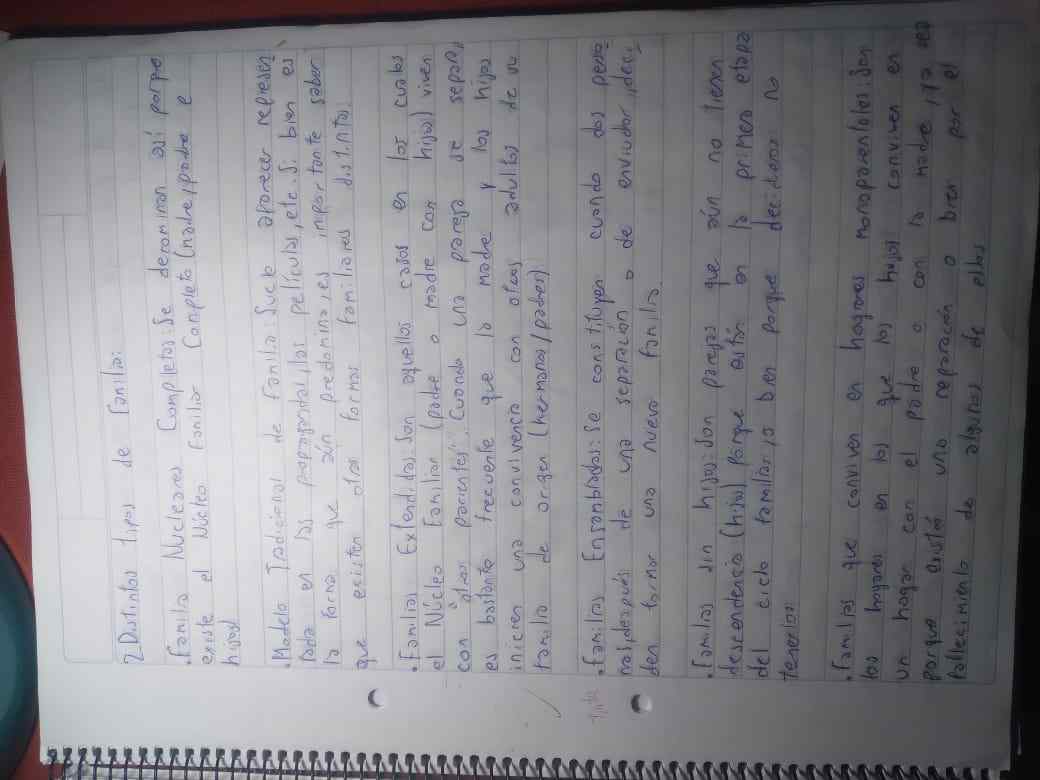 2) Distintos tipos de familia:
• Familia Nucleares Completas: Se denominan así porque
existe el Núcleo Familiar Completo (madre, padre e
hijos)
• Modelo Tradicional de Familia: Suele aparecer represen
tada en las propagandas, las películas, etc. Si bien es
la forma que aún predomina, es importante saber
que existen otras formas familiares distintas
• Familias Extendidas: Son aquellos casos en los cuales
el Núcleo Familiar (padre o madre con hijos) viven
con "otros parientes". Cuando una pareja se separa,
es bastante frecuente que la madre y los hijos
inicien una convivencia con otros adultos de su
familia de origen (hermanos/padres)
• Familias Ensambladas: Se constituyen cuando dos perso
nas, después de una separación o de enviudar, deci
den formar una nueva familia.
• Familias sin hijos: Son parejas que aún no tienen
descendencia (hijos) porque están en la primera etapa
del ciclo familiar, o bien porque decidieron no
tenerlos.
• Familias que conviven en hogares monoparentales: Son
los hogares en los que los hijos conviven en
un hogar con el padre o con la madre, ya sea
porque existió una separación o bien por el
fallecimiento de algunos de ellos